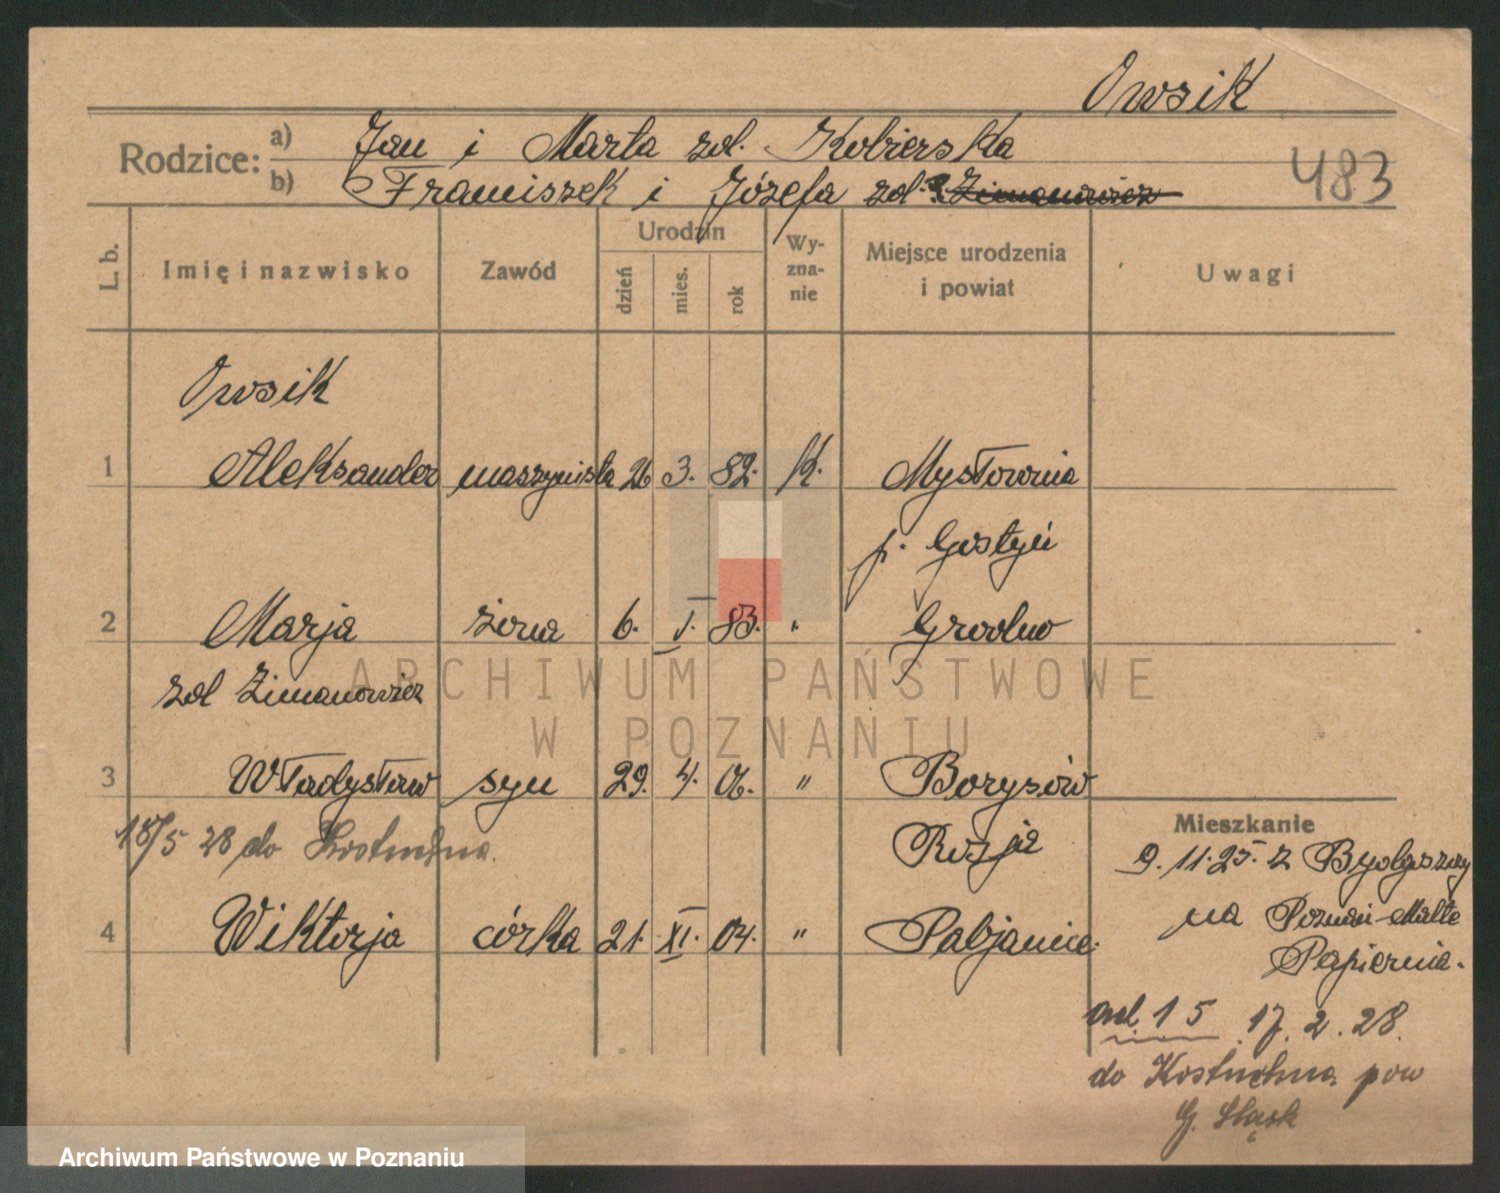 Owsik
Rodzice: a) Jan i Marta zd. Kobierska
b) Franciszek i Józefa zd. ? Zimanowicz
483
L. b. Imię i nazwisko Zawód Urodzin dzień mies. rok Wy-zna-nie Miejsce urodzenia i powiat Uwagi
Owsik
1 Aleksander maszynista 26 3. 82. K. Mysłownia
p. Gostyń
2 Marja żona 6. I. 83. " Grodno
zd Zimanowicz
3 Władysław syn 29. 4. 06. " Borysów
18/5 28 do Kostuchna. Rosja
4 Wiktorja córka 21. XI. 04. " Pabjanice.
Mieszkanie
9.11.25. z Bydgoszczy
na Poznań-Malte
Papiernia.
od 15 17.2.28.
do Kostuchna pow
G. Śląsk
ARCHIWUM PAŃSTWOWE
W POZNANIU
Archiwum Państwowe w Poznaniu